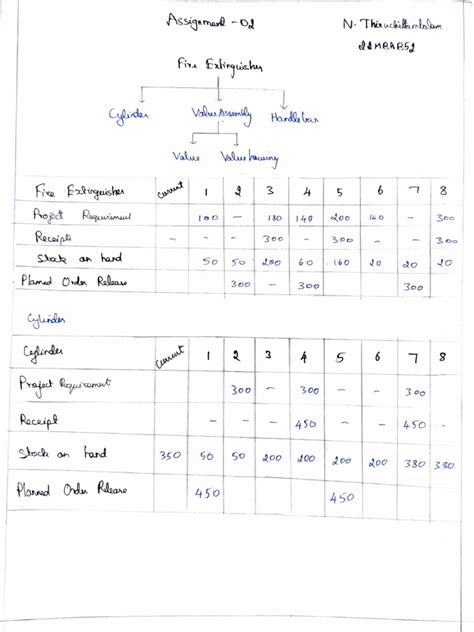 Assignment - 02
N. Thiruchittambalam
22MBAB52
Fire Extinguisher
Cylinder Valve Assembly Handle bar
Valve Valve housing
Fire Extinguisher current 1 2 3 4 5 6 7 8
Project Requirement 100 - 180 140 200 140 - 300
Receipts - - - 300 - 300 - - 300
Stock on hand 50 50 200 60 160 20 20 20
Planned Order Release 300 - 300 300
Cylinder
Cylinder current 1 2 3 4 5 6 7 8
Project Requirement 300 - 300 - - 300
Receipt - - - 450 - - 450 -
Stock on hand 350 50 50 200 200 200 200 380 380
Planned Order Release 450 450